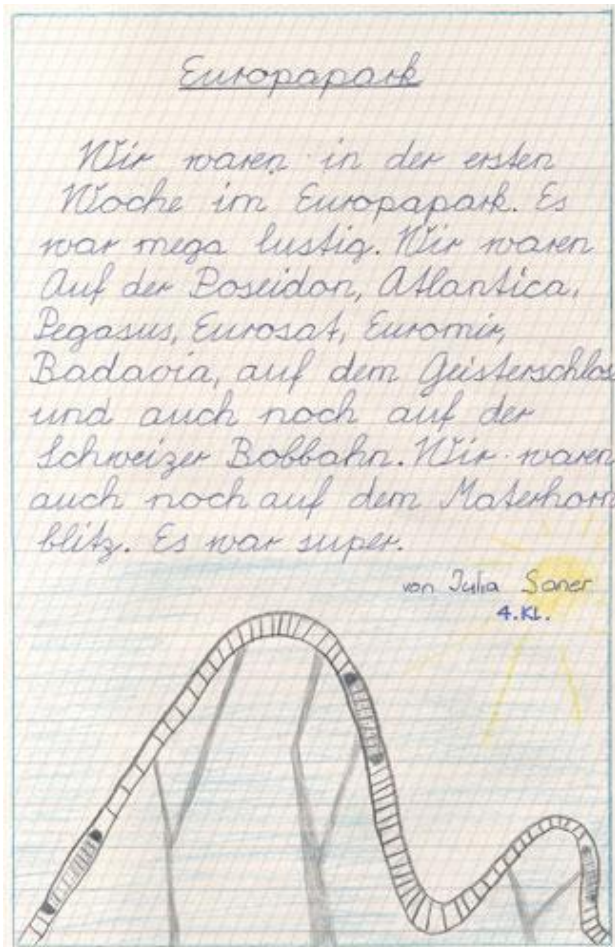 Europapark
Wir waren in der ersten
Woche im Europapark. Es
war mega lustig. Wir waren
Auf der Poseidon, Atlantica,
Pegasus, Eurosat, Euromir,
Badavia, auf dem Geisterschloss
und auch noch auf der
Schweizer Bobbahn. Wir waren
auch noch auf dem Materhorn
blitz. Es war super.
von Julia Saner
4.Kl.